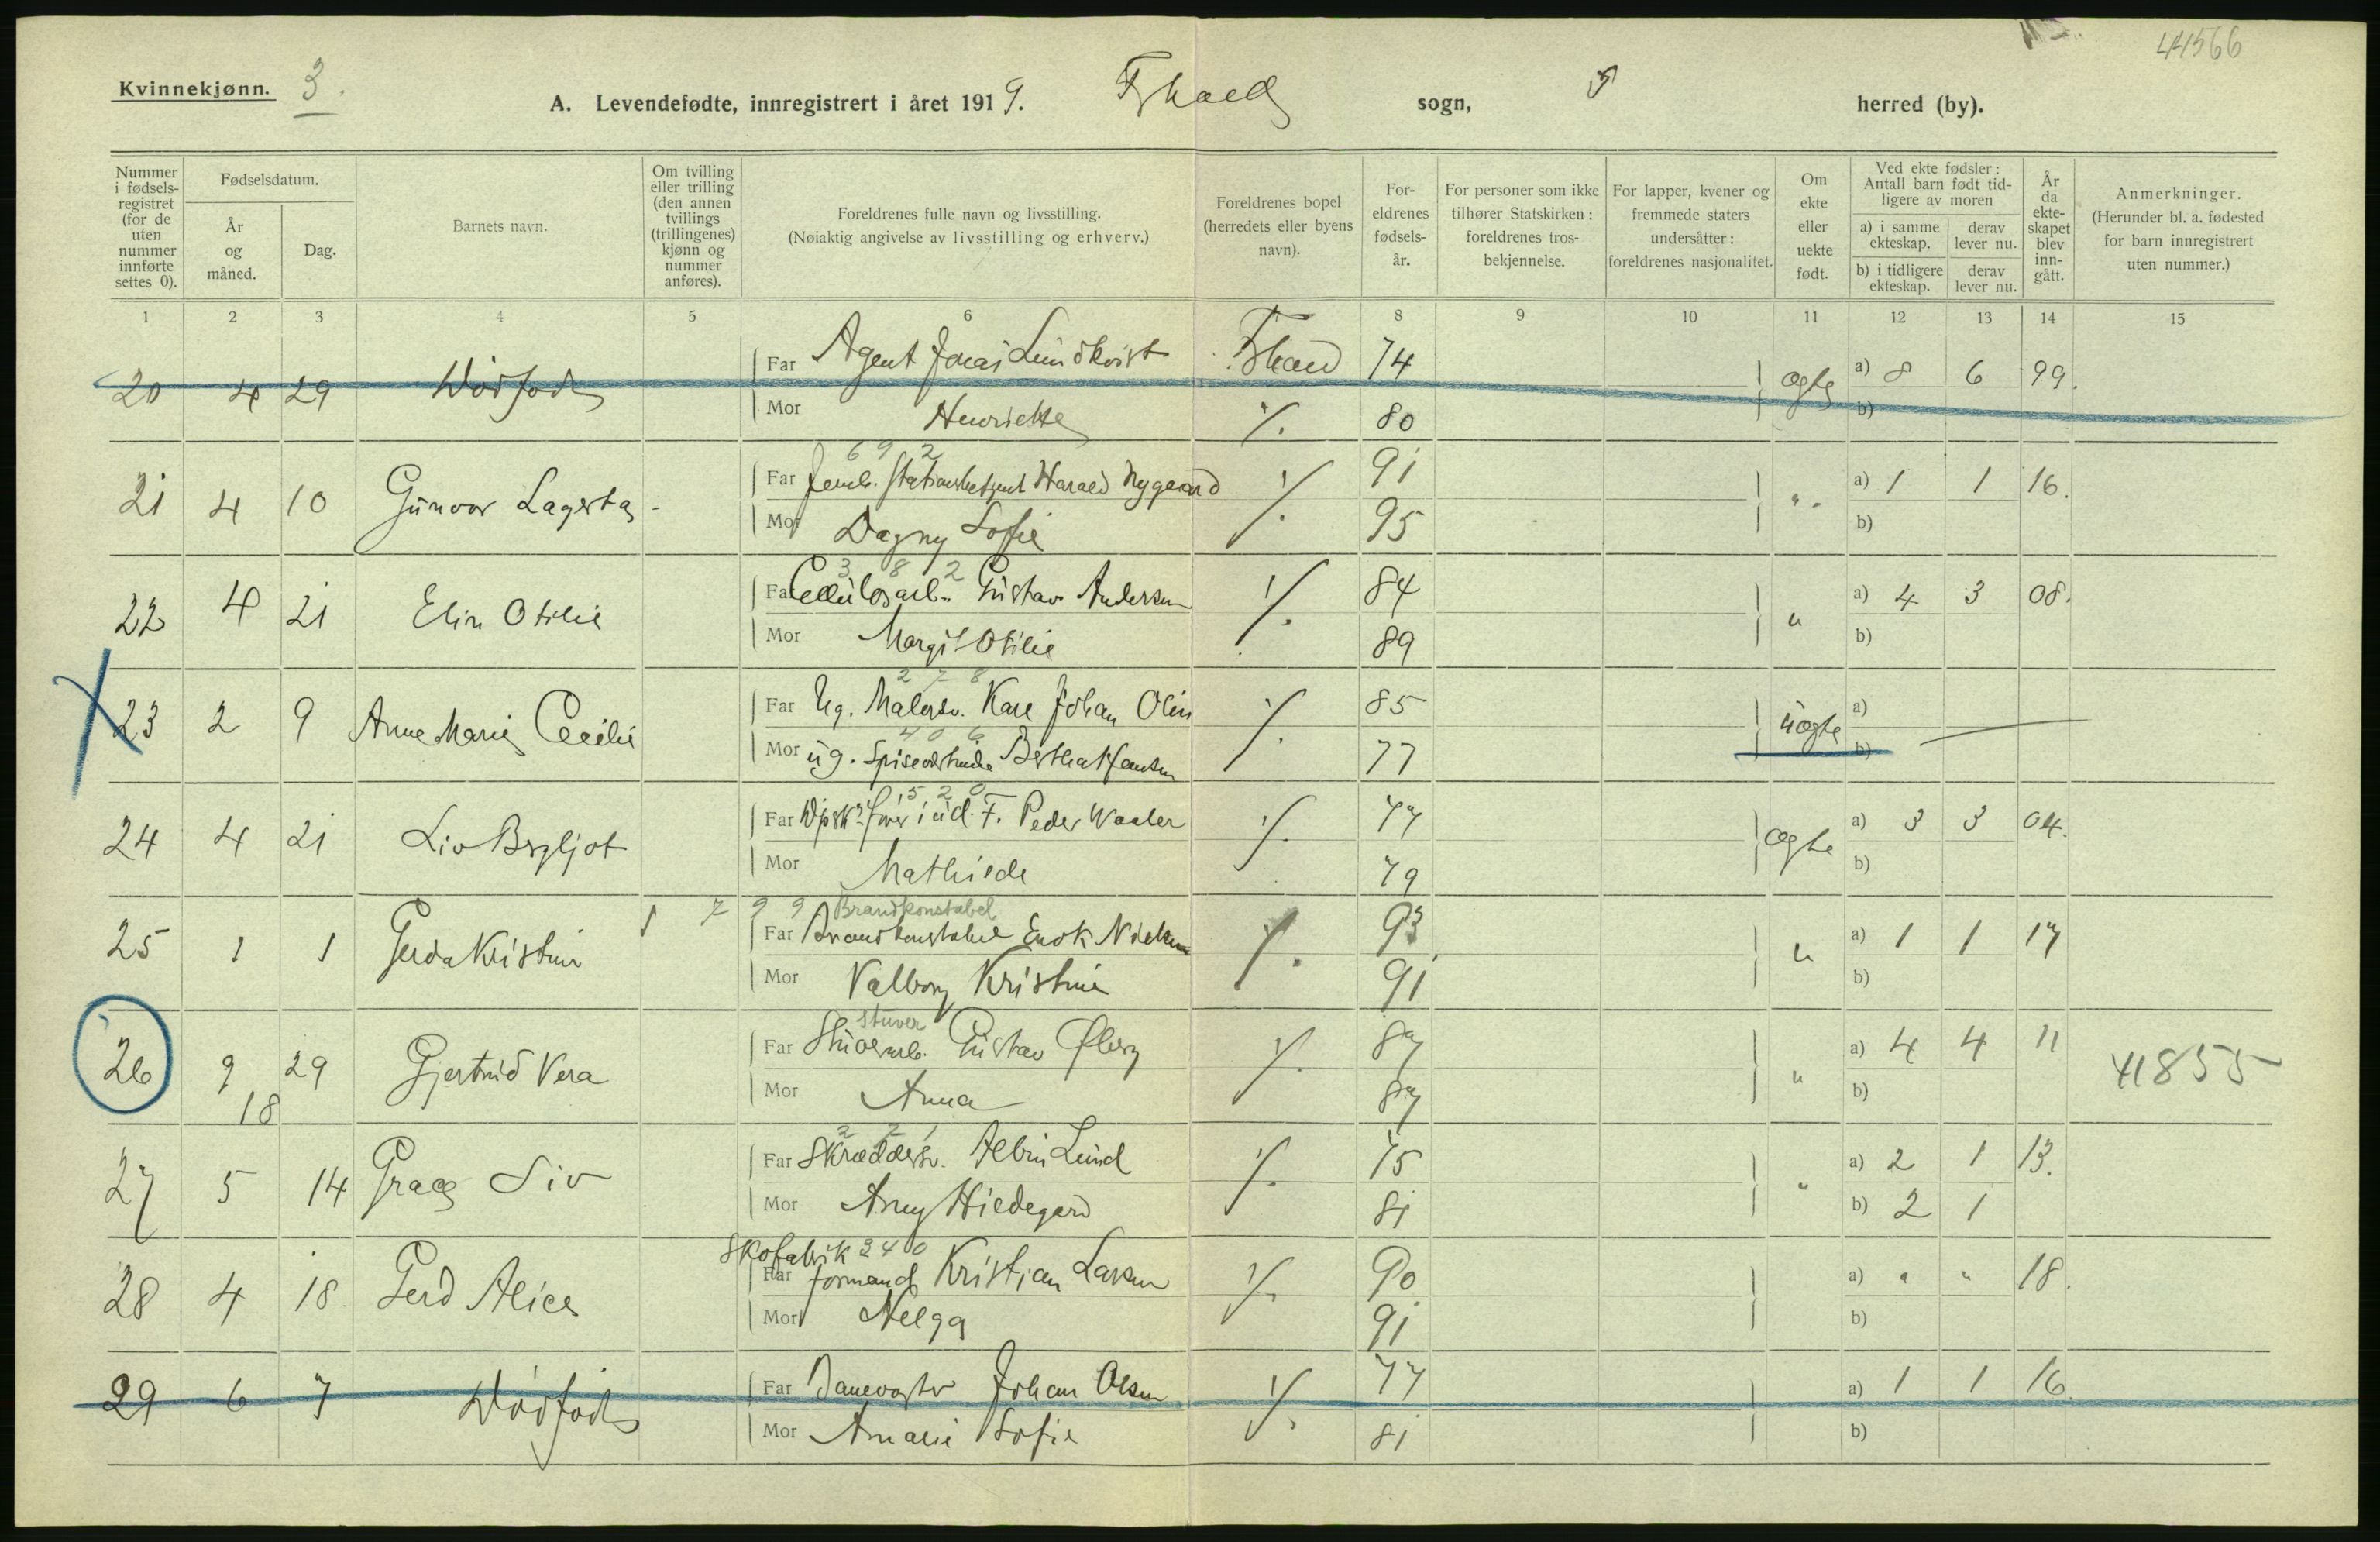 44566
Kvinnekjønn. 3.
A. Levendefødte, innregistrert i året 1919. Fhald sogn, herred (by).
Nummer i fødselsregistret (for de uten nummer innførte settes 0).
Fødselsdatum.
År og måned.
Dag.
Barnets navn.
Om tvilling eller trilling (den annen tvillings (trillingenes) kjønn og nummer anføres).
Foreldrenes fulle navn og livsstilling.
(Nøiaktig angivelse av livsstilling og erhverv.)
Foreldrenes bopel (herredets eller byens navn).
Foreldrenes fødselsår.
For personer som ikke tilhører Statskirken: foreldrenes trosbekjennelse.
For lapper, kvener og fremmede staters undersåtter: foreldrenes nasjonalitet.
Om ekte eller uekte født.
Ved ekte fødsler: Antall barn født tidligere av moren
a) i samme ekteskap. derav lever nu.
b) i tidligere ekteskap. derav lever nu.
År da ekteskapet blev inngått.
Anmerkninger.
(Herunder bl. a. fødested for barn innregistrert uten nummer.)
1 2 3 4 5 6 8 9 10 11 12 13 14 15
20 4 29 Dødfødt Far Agent Jonas Lundkvist Fhald 74 ægte a) 8 6 99.
Mor Henriette ./. 80 b)
6 9 2
21 4 10 Gunvor Lagerta Far Jernb. Stationsbetjent Harald Nygaard ./. 91 " a) 1 1 16.
Mor Dagny Sofie 95 b)
3 8 2
22 4 21 Elin Otilie Far Cellulosarb. Gustav Andersen ./. 84 " a) 4 3 08.
Mor Margit Otilie 89 b)
2 7 8
23 2 9 Anne Marie Cecilie Far Ug. Malersv. Karl Johan Olin ./. 85 uægte a)
4 0 6
Mor ug. Spisevertinde Bertha Hansen 77 b)
5 2 0
24 4 21 Liv Bergljot Far i ud. F. Peder Waaler ./. 77 ægte a) 3 3 04.
Mor Mathilde 79 b)
7 9 9 Brandkonstabel
25 1 1 Gerda Kristine Far Brandkonstabel Enok Nielsen ./. 93 " a) 1 1 17
Mor Valborg Kristine 91 b)
Stuver
26 9 29 Gjertrud Vera Far Stuerarb. Gustav Øberg ./. 87 " a) 4 4 11 41855
18 Mor Anna 87 b)
2 2 1
27 5 14 Grace Siv Far Skræddersv. Albin Lund ./. 75 " a) 2 1 13.
Mor Amy Hildegard 81 b) 2 1
Skofabrik 340
28 4 18. Gerd Alice Far formand Kristian Larsen ./. 90 a) " " 18.
Mor Helga 91 b)
29 6 7 Dødfødt Far Banevogter Johan Olsen ./. 77 a) 1 1 16.
Mor Amalie Sofie 81 b)